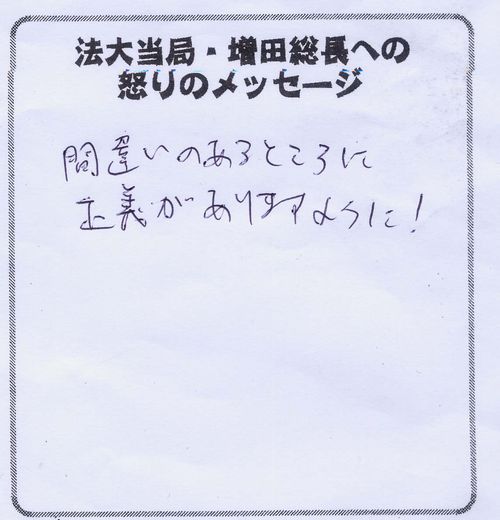 法大当局・増田総長への
怒りのメッセージ
間違いのあるところに
正義がありますように!